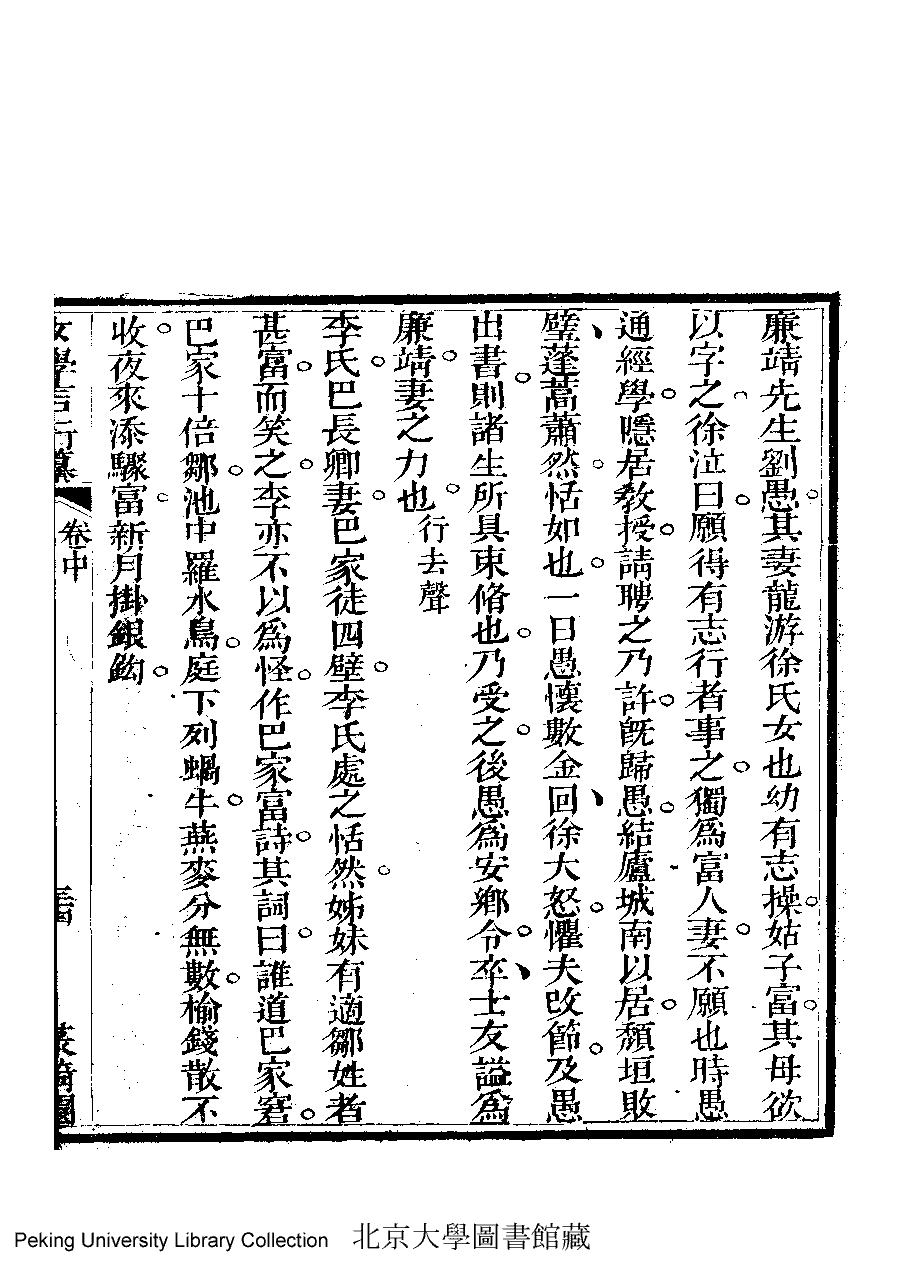 廉靖先生劉愚其妻龍游徐氏女也幼有志操姑子富其母欲
以字之徐泣曰願得有志行者事之獨爲富人妻不願也時愚
通經學隱居教授請聘之乃許旣歸愚結廬城南以居頹垣敗
壁蓬蒿蕭然恬如也一日愚懷數金回徐大怒懼夫改節及愚
出書則諸生所具束脩也乃受之後愚爲安鄉令卒士友謚爲
廉靖妻之力也行去聲
李氏巴長卿妻巴家徒四壁李氏處之恬然姊妹有適鄒姓者
甚富而笑之李亦不以爲怪作巴家富詩其詞曰誰道巴家窘
巴家十倍鄒池中羅水鳥庭下列蝸牛燕麥分無數榆錢散不
收夜來添驟富新月掛銀鉤
女學言行纂
卷中
Peking University Library Collection 北京大學圖書館藏